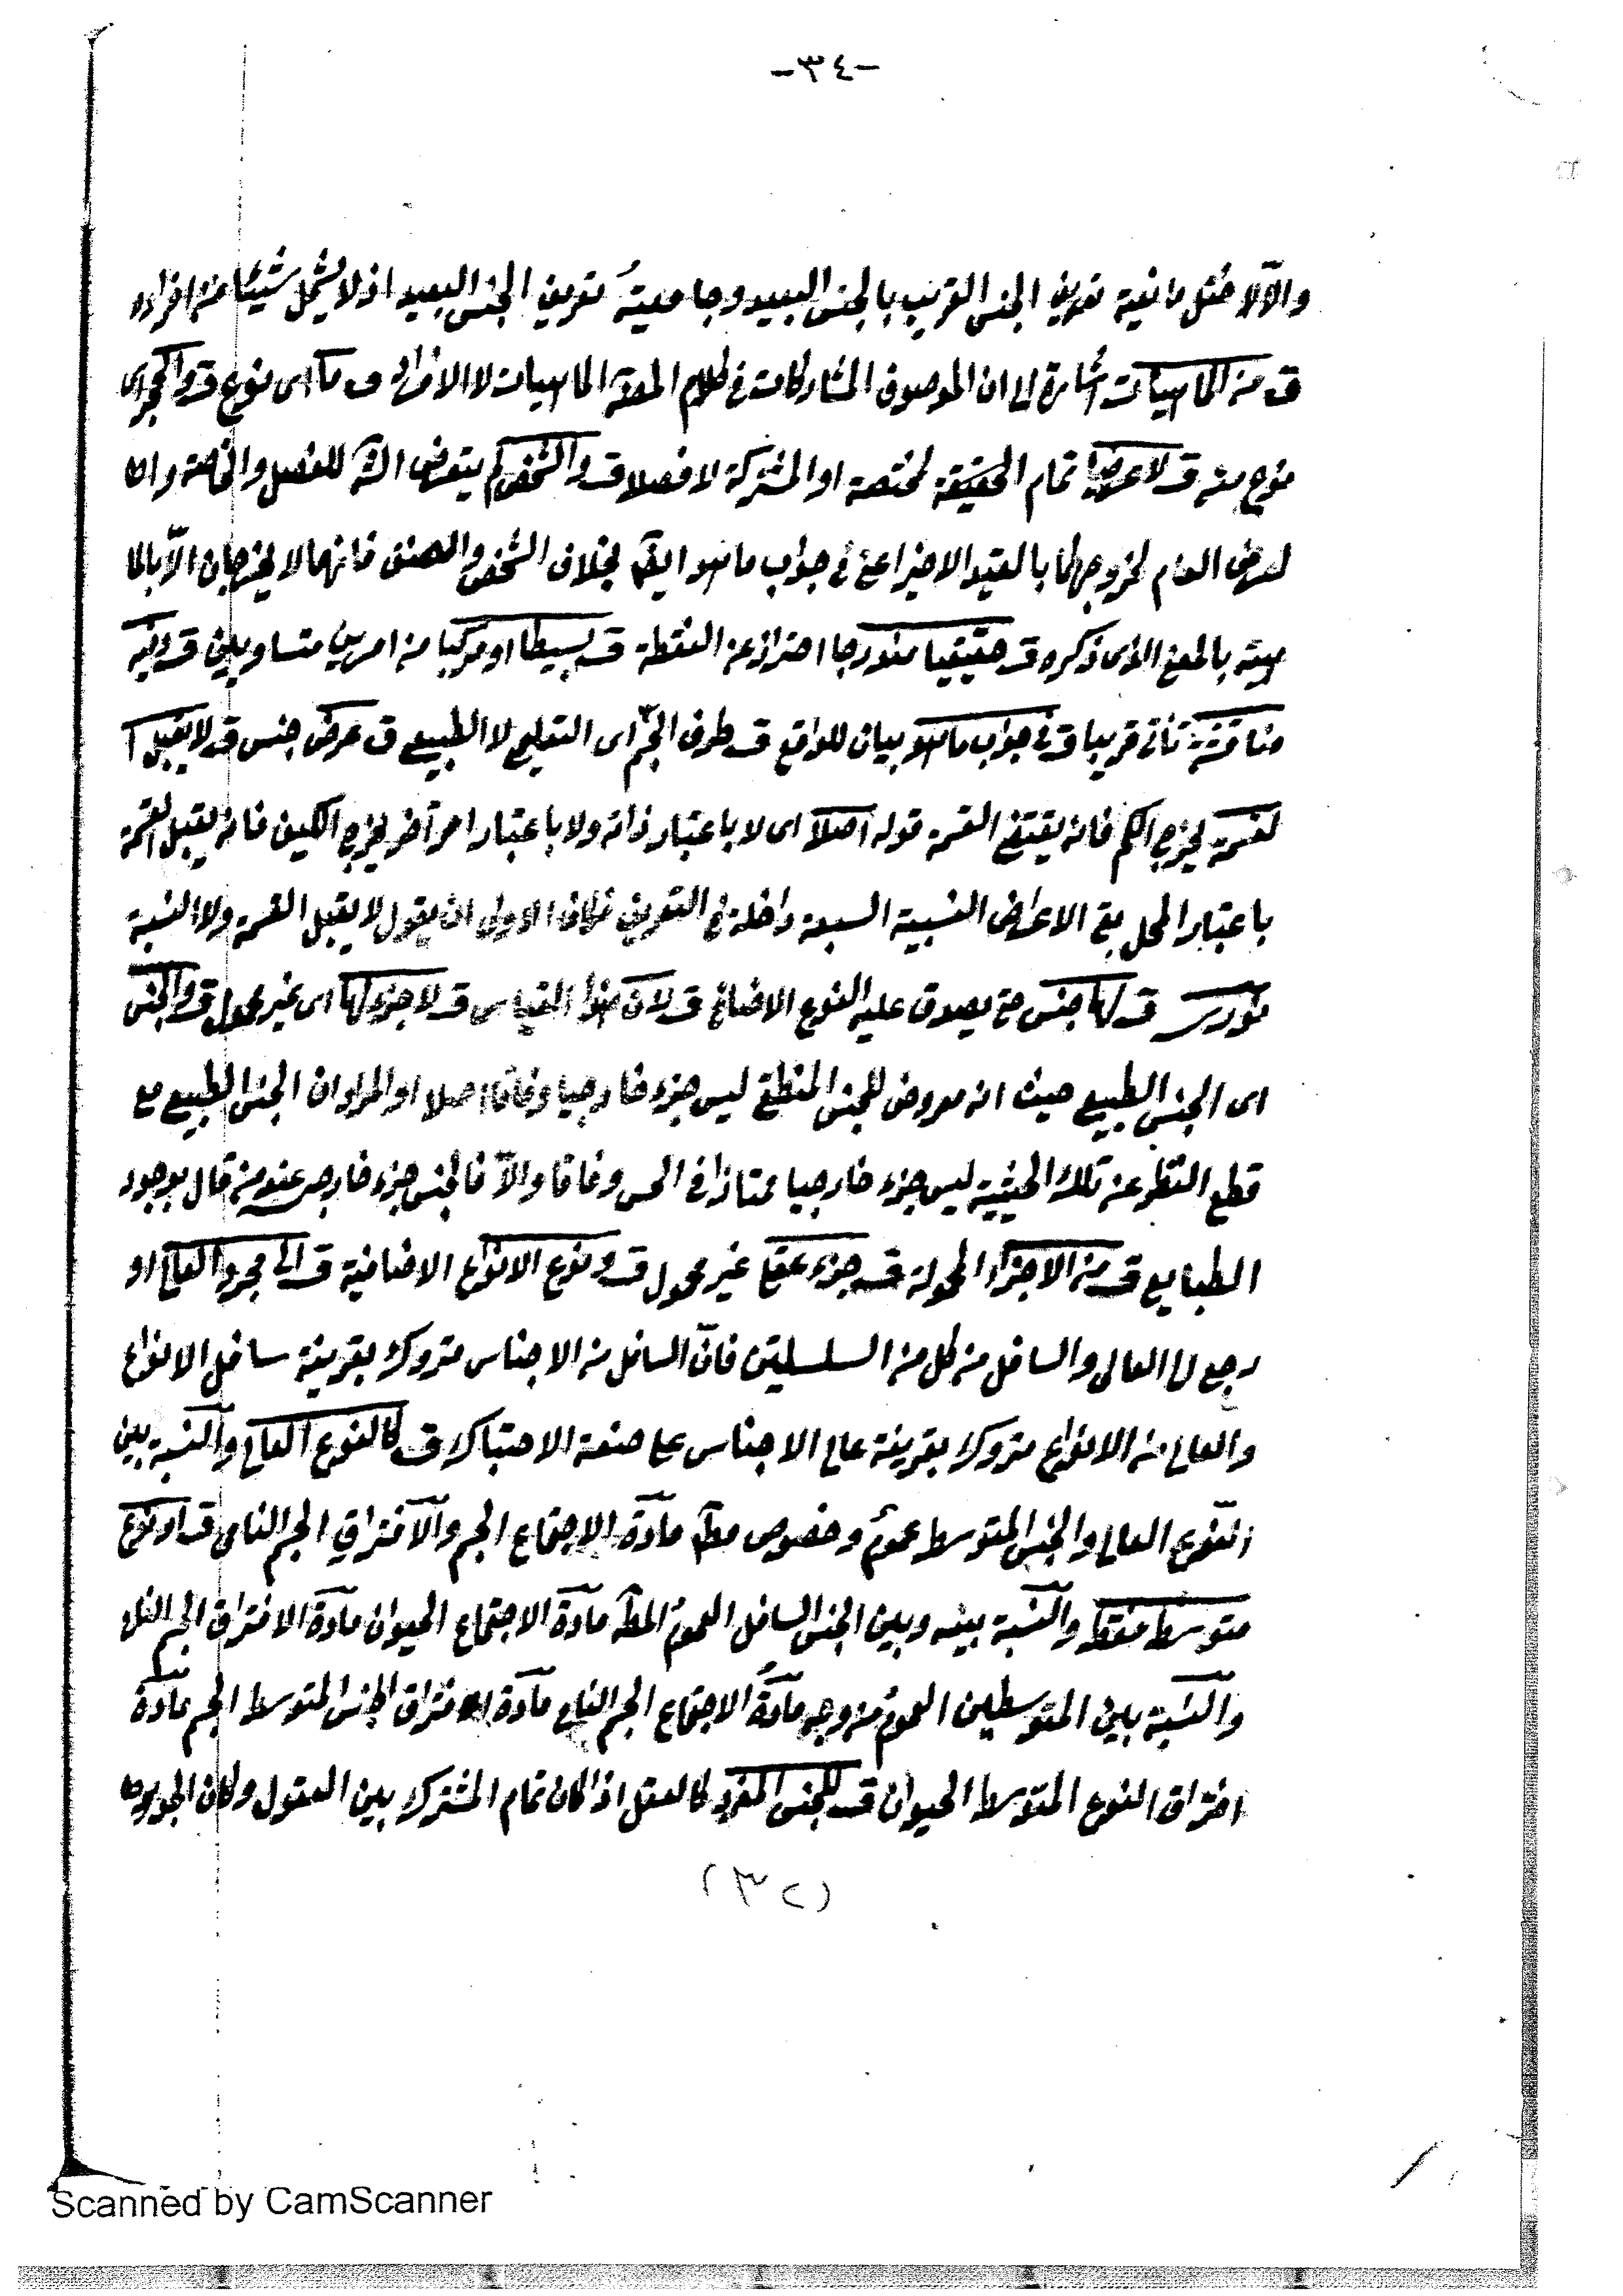 -٣٤-
والآ لاختل مانعية تعريف الجنس القريب بالجنس البعيد وجامعية تعريف الجنس البعيد اذ لا يشمل شيئا من افراده
ق من الماهيات اشارة الى ان الموصوف المشاركات فى كلام المصـ الماهيات لا الافراد ق ما اى نوع ق والحجر اى
نوع منه ق لا عرضيا تمام الحقيقة مختصة او المشتركة لا فصلا ق والشخص لم يتعرض الشـ للفصل والخاصة وا
لعرض العام لخروجهما بالقيد الاخير اعنى فى جواب ما هو ايضـ بخلاف الشخص والصنف فانهما لا يخرجان الاّ بالما
هية بالمعنى الذى ذكره ق حقيقيا مندرجا احتراز عن النقطة ق بسيطا او مركبا من امرين متساويين ق وفيه
مناقشة تأتى قريبا ق فى جواب ما هو بيان للواقع ق طرف الجسم اى التعليمى لا الطبيعى ق عرض جنس ق لا يقبل ا
لقسمة يخرج الكم فانه يقتضى القسمة قوله اصلا اى لا باعتبار ذاته ولا باعتبار امر آخر يخرج الكيف فانه يقبل القسمة
باعتبار المحل بقى الاعراض النسبية السبعة داخلة فى التعريف فكان الاولى ان يقول لا يقبل القسمة ولا النسبة
ق لها جنس حتى يصدق عليه النوع الاضافى ق لان هذا القياس ق لا جزء لها اى غير محمول ق والجنس
اى الجنس الطبيعى حيث انه معروض للجنس المنطقى ليس جزء خارجيا وفاقا اصلا او المراد ان الجنس الطبيعى مع
قطع النظر عن تلك الحيثية ليس جزء خارجيا ممتازا فى الحس وفاقا والاّ فالجنس جزء خارجى عند من قال بوجود
الطبايع ق من الاجزاء المحمولة ق جزء عقلى غير محمول ق ونوع الانواع الاضافية ق الى مجرد العالى او
رجع الى العالى والسافل من كل من السلسلتين فانّ السافل من الاجناس متروك بقرينة سافل الانواع
والعالى من الانواع متروك بقرينة عالى الاجناس على صنعة الاحتباك ق كالنوع العالى والنسبة بين
النوع العالى والجنس المتوسط عموم وخصوص مطـ مادة الاجتماع الجسم والافتراق الجسم النامى ق او نوع
متوسط فقط والنسبة بينه وبين الجنس السافل العموم المطـ مادة الاجتماع الحيوان مادة الافتراق الجسم النامى
والنسبة بين المتوسطين العموم من وجه مادة الاجتماع الجسم النامى مادة افتراق الجنس المتوسط الجسم مادة
افتراق النوع المتوسط الحيوان ق للجنس المفرد كالعقل اذا كان تمام المشترك بين العقول وكان الجوهر
(٣٢)
Scanned by CamScanner